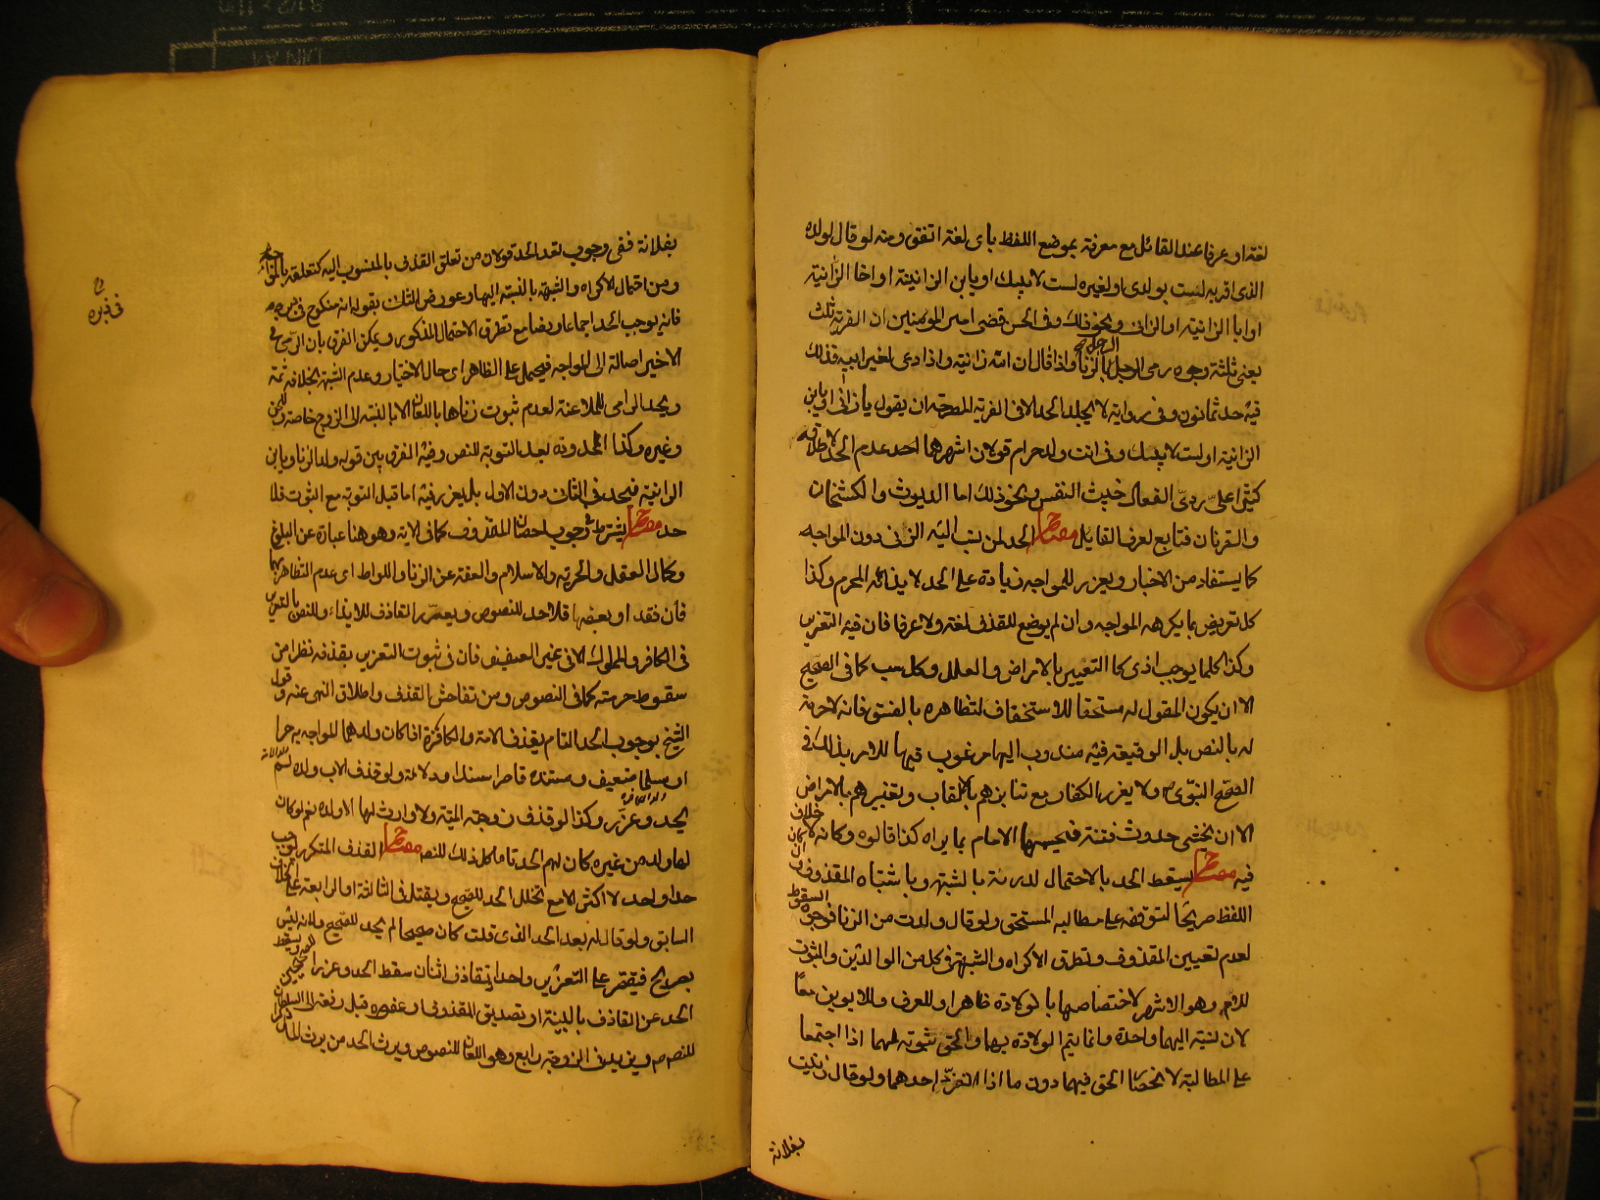 لغة او عرفا عند القائل مع معرفة بموضع اللفظ باى لغة اتفق ومنه لو قال لولده
الذى اقر به لست بولدى او لغيره لست لابيك او يا بن الزانية او اخا الزانية
او ابا الزانية او الزانى ونحو ذلك وفى الحسن قضى امير المؤمنين ان الفرية ثلث
يعنى ثلثة وجوه رمى الرجل الرجل بالزنا واذا قال ان امه زانية واذا دعى لغير ابيه فذلك
فيه حد ثمانون وفى رواية لا يجلد الحد الا فى الفرية المصرحة ان يقول يا زانى او يابن
الزانية او لست لابيك وفى انت ولد حرام قولان اشهرهما احد عدم الحد لاطلاقه
كثيرا على ردى الفعال خبيث النفس ونحو ذلك اما الديوث والكشخان
والقرنان فتابع لعرف القايل مفتاح الحد لمن نسب اليه الزنى دون المواجه
كما يستفاد من الاخبار ويعزر للمواجه زيادة على الحد لايذائه المحرم وكذا
كل تعريض بما يكرهه المواجه وان لم يوضع للقذف لغة ولا عرفا فان فيه التعزير
وكذا كلما يوجب اذى كالتعيير بالامراض والعلل وكل سب كما فى الصحيح
الا ان يكون المقول له مستحقا للاستخفاف لتظاهره بالفسق فانه لا حرمة
له بالنص بل الوقيعة فيه مندوب اليها مرغوب فيها للامر بذلك فى
الصحيح النبوى ولا يعزر الكفار مع تنابزهم بالالقاب وتعييرهم بالامراض
الا ان يخشى حدوث فتنة فيحسمها الامام بما يراه كذا قالوه وكانه لا خلاف
فيه مفتاح يسقط الحد بالاحتمال لدرئه بالشبهة وباشتباه المقذوف وان كان
اللفظ صريحا لتوقفه على مطالبه المستحق ولو قال ولدت من الزنا فوجه السقوط
لعدم تعيين المقذوف وتطرق الاكراه والشبهة فى كل من الوالدين والثبوت
للام وهو الاشهر لاختصاصها بالولادة ظاهرا وللعرف وللابوين معا
لان نسبته اليهما واحدة وانما يتم الولادة بهما والحق ثبوته لهما اذا اجتمعا
على المطالبة لانحصار الحق فيهما دون ما اذا انفرد احدهما ولو قال زنيت
بفلانة
بفلانة ففى وجوب تعدد الحد قولان من تعلق القذف بالمنسوب اليه كتعلقه بالمواجه
ومن احتمال الاكراه والشبهة بالنسبة اليها وعورض الثالث بقوله انه منكوح فى دبره
فانه يوجب الحد اجماعا ونصا مع تطرق الاحتمال المذكور ويمكن الفرق بان الرمى فى
الاخير اصالة الى المواجه فيحمل على الظاهر اى حال الاختيار وعدم الشبهة بخلافه ثمة
ويحد الرامى للملاعنة لعدم ثبوت زناها باللعان الا بالنسبة الى الزوج خاصة وللحسن
وغيره وكذا المحدودة بعد التوبة للنص وفيه الفرق بين قوله ولد الزنا ويابن
الزانية فيحد فى الثانى دون الاول بل يعزر فيه اما قبل التوبة مع الثبوت فلا
حد مفتاح يشترط فى وجوب احصان المقذوف كما فى الاية وهو هنا عبارة عن البلوغ
وكمال العقل والحرية والاسلام والعفة عن الزنا واللواط اى عدم التظاهر بهما
فان فقد او بعضها فلا حد للنصوص ويعزر القاذف للايذاء وللنص بالتعزير
فى الكافر والمملوك الا فى غير العفيف فان فى ثبوت التعزير بقذفه نظرا من
سقوط حرمته كما فى النصوص ومن تفاحش القذف واطلاق النهى عنه وقول
الشيخ بوجوب الحد التام بقذف الامة والكافرة اذا كان ولدهما المواجه به حرا
او مسلما ضعيف ومستنده قاصر سندا ودلالة ولو قذف الاب ولده لم
يحد وعزر وكذا لو قذف زوجته الميتة ولا وارث لها الا ولده نعم لو كان
لها ولد من غيره كان لهم الحد تاما كل ذلك للنص مفتاح القذف المتكرر يوجب
حدا واحد لا اكثر الا مع تخلل الحد للصحيح ويقتل فى الثالثة او الرابعة على الخلاف
السابق ولو قال له بعد الحد الذى قلت كان صحيحا لم يحد للصحيح ولانه ليس
بصريح فيقتصر على التعزير واحدا يتقاذف اثنان سقط الحد وعزرا للصحيحين ويسقط
الحد عن القاذف بالبينة او تصديق المقذوف او عفوه قبل رفعه الى السلطان
للنصوص ويزيد فى الزوجة رابع وهو اللعان للنصوص ويرث الحد من يرث المال
فى دبره